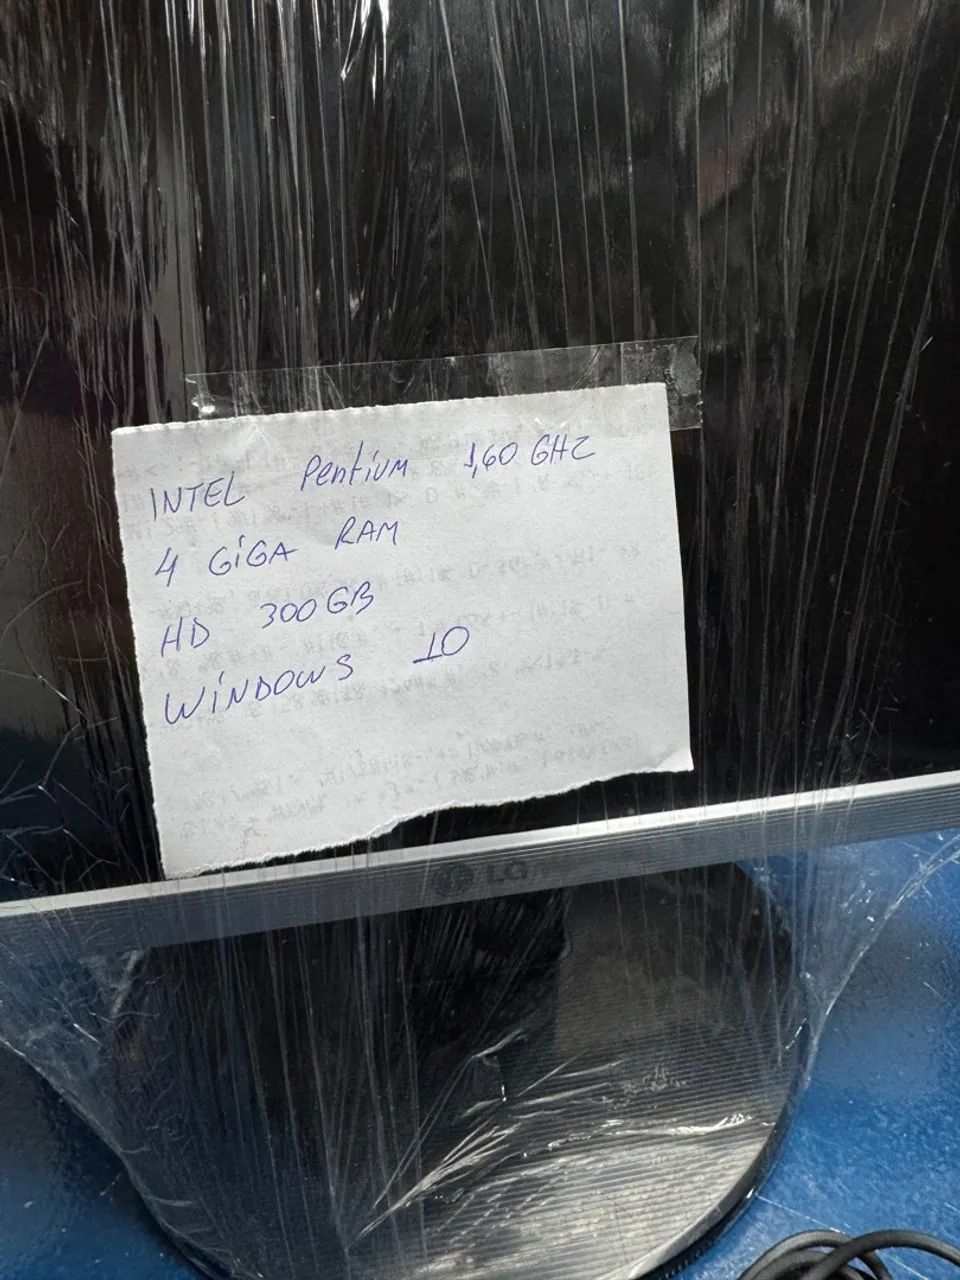 INTEL Pentium 1,60 GHZ
4 GiGA RAM
HD 300 GB
WiNDOWS 10
LG